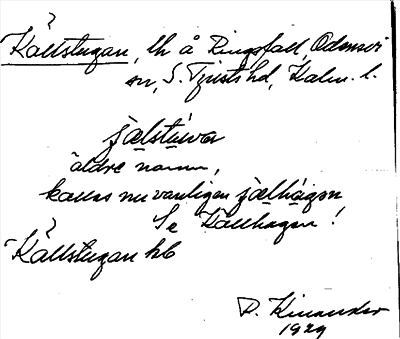 ?
Källstugan, lh å Ringsfall, Odensvi
sn, S. Tjusts hd, Kalm. l.
jælstúwa
äldre namn,
kallas nu vanligen jælhágen
Se Källhagen!
?
Källstugan hb
D. Kinander
1929